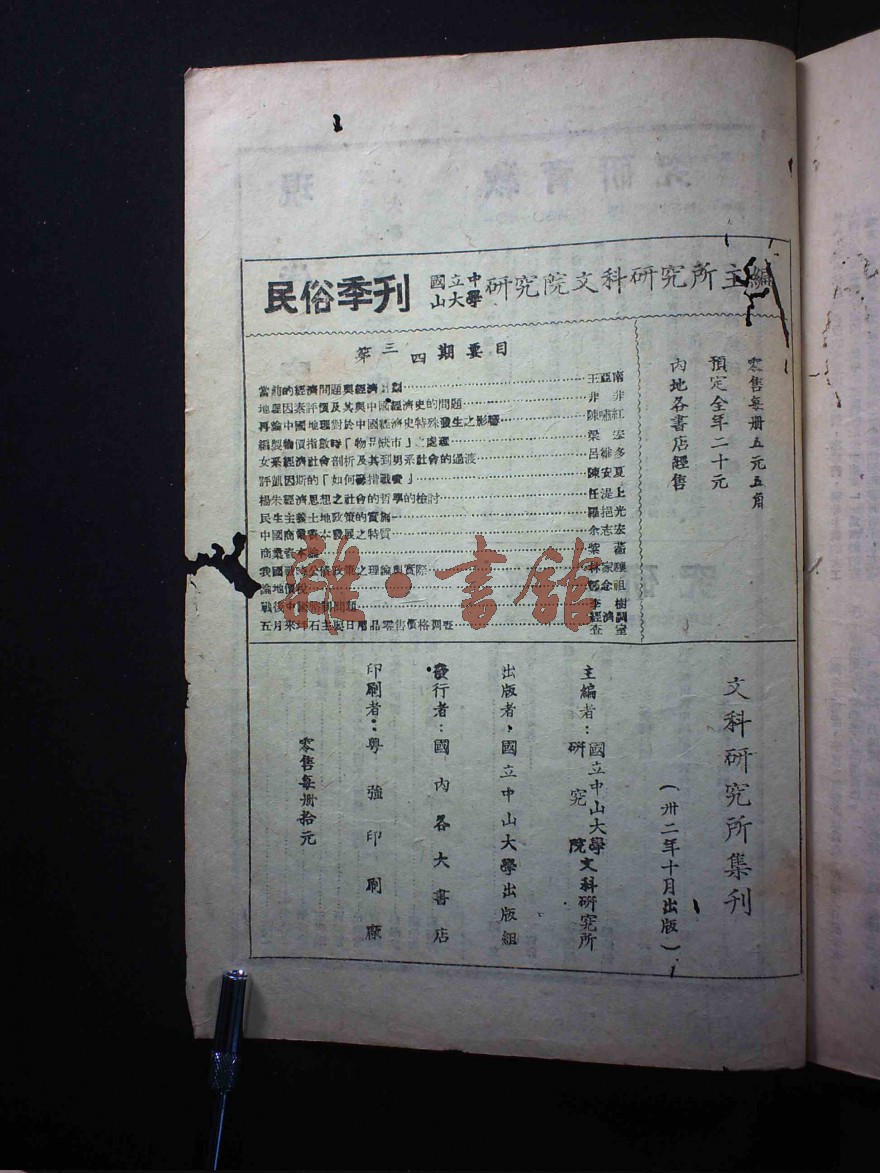 民俗季刊 國立中山大學研究院文科研究所主編
零售每册五元五角
預定全年二十元
內地各書店經售
第三四期要目
當前的經濟問題與經濟計劃 王亞南
地理因素評價及其與中國經濟史的問題 非非
再論中國地理對於中國經濟史特殊發生之影響 陳嘯紅
編製物價指數時「物品缺市」之處理 梁宏
女系經濟社會剖析及其到男系社會的過渡 呂維多
評凱因斯的「如何籌措戰費」 陳安夏
楊朱經濟思想之社會的哲學的檢討 任湜上
民生主義土地政策的實施 羅挹光
中國商業資本發展之特質 余志宏
商業資本論
我國戰時公債政策之理論與實際 林家驤
論地價稅 念祖
戰後中國幣制問題 李樹
五月來坪石主要日用品零售價格調查 經濟調查室
文科研究所集刊
(卅二年十月出版)
主編者：國立中山大學研究院文科研究所
出版者，國立中山大學出版組
發行者：國內各大書店
印刷者：粵強印刷廠
零售每册拾元
雜·書館